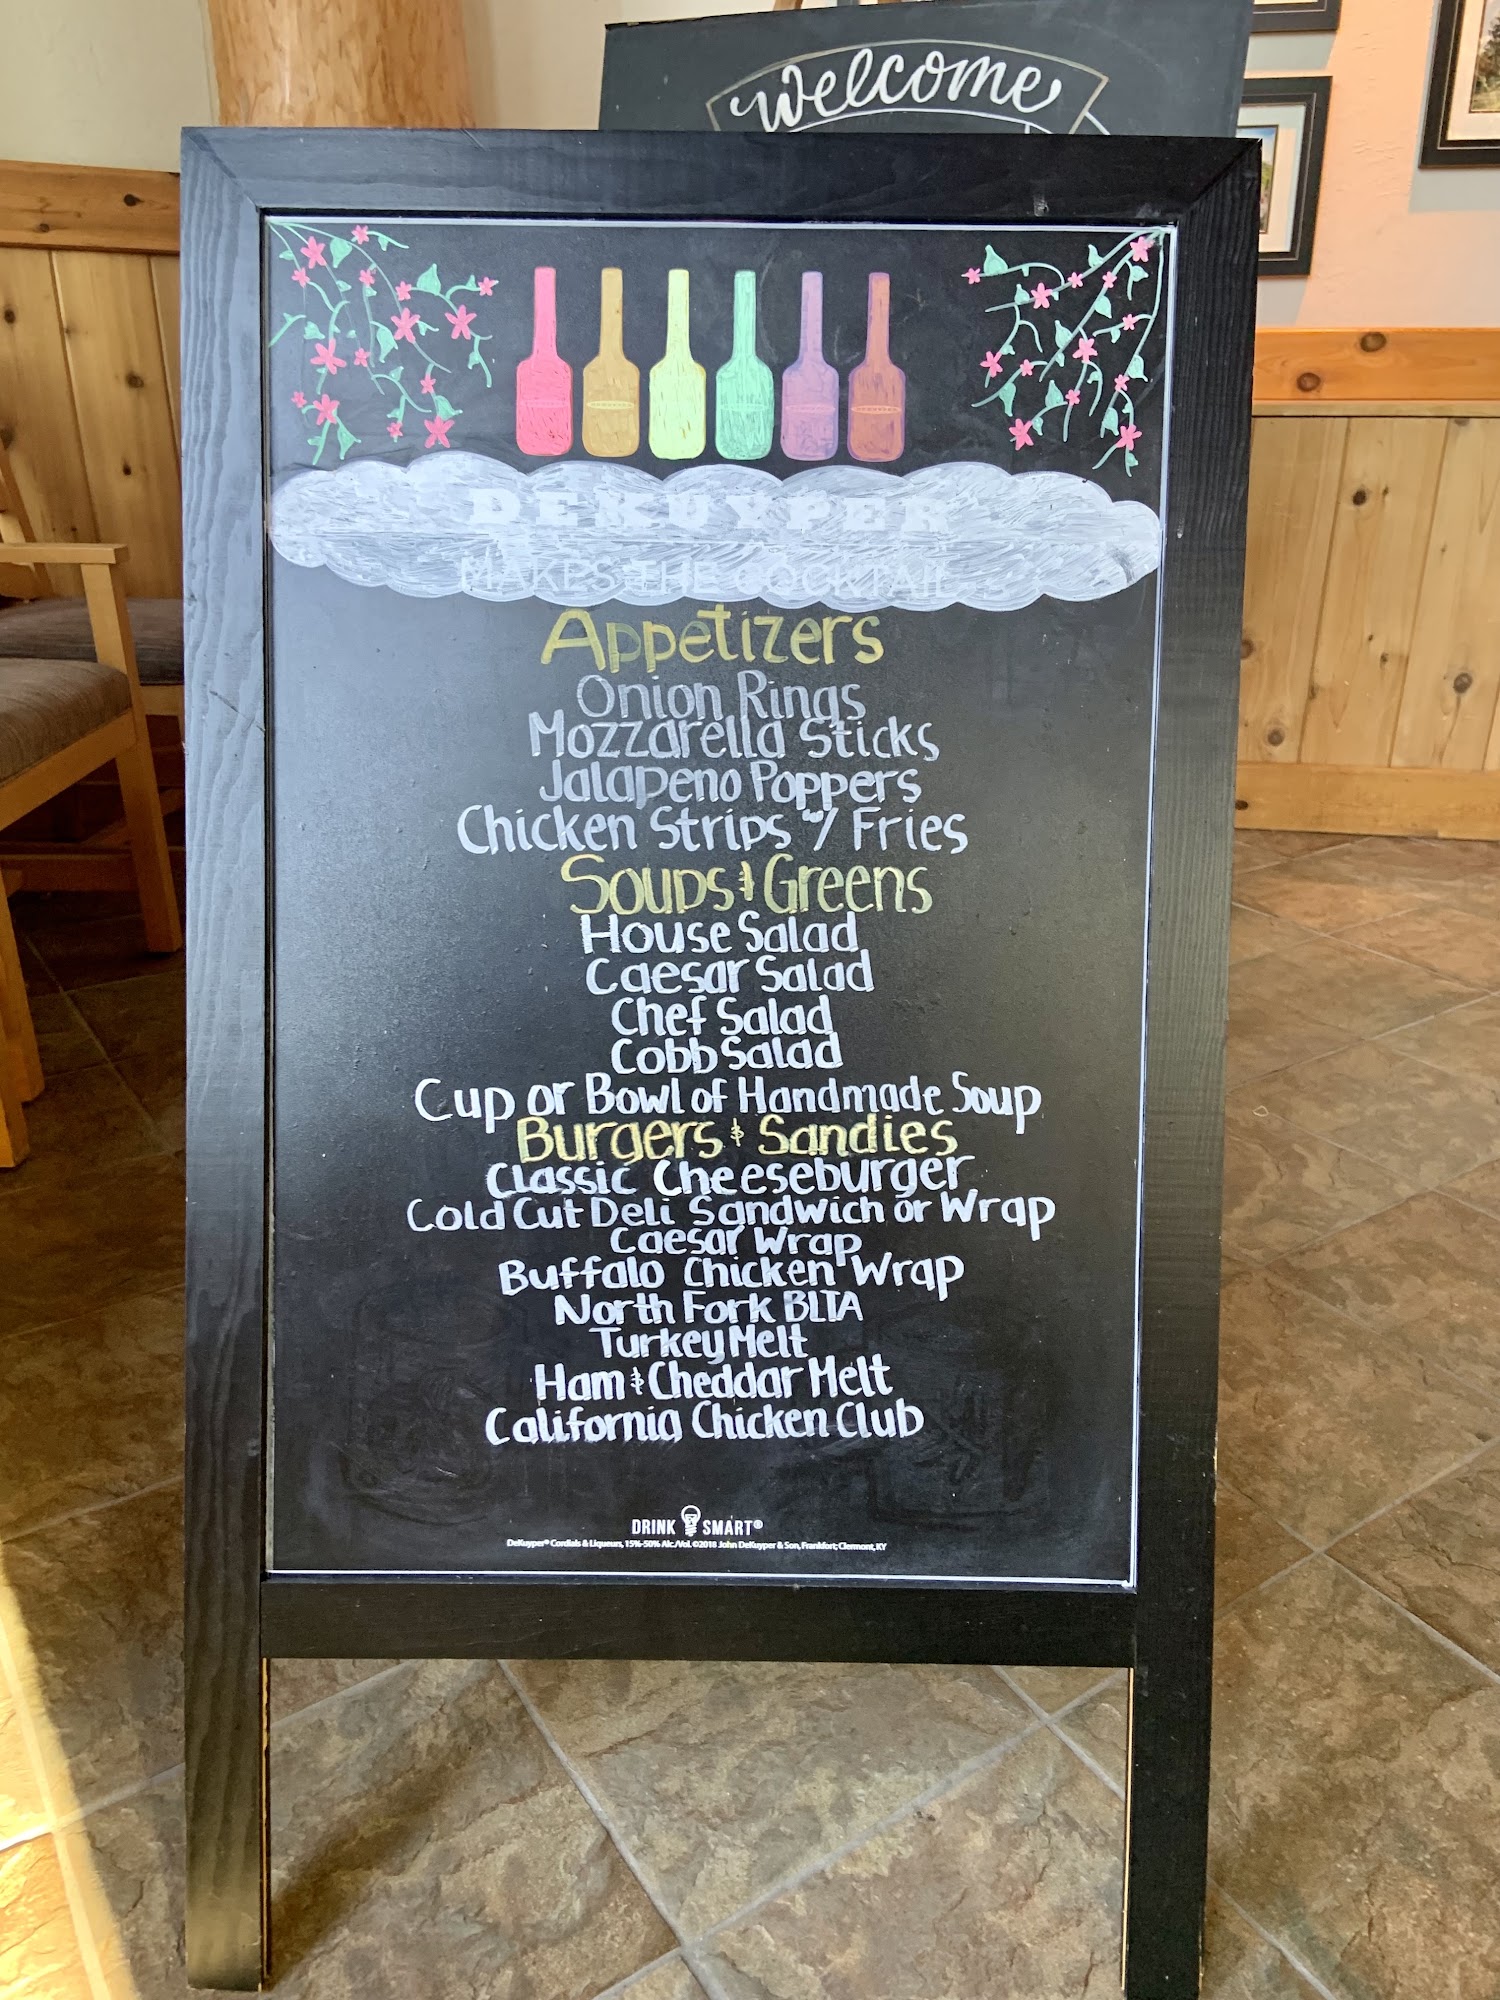 welcome
DEKUYPER
MAKES THE COCKTAIL
Appetizers
Onion Rings
Mozzarella Sticks
Jalapeno Poppers
Chicken Strips w/ Fries
Soups & Greens
House Salad
Caesar Salad
Chef Salad
Cobb Salad
Cup or Bowl of Handmade Soup
Burgers & Sandies
Classic Cheeseburger
Cold Cut Deli Sandwich or Wrap
Caesar Wrap
Buffalo Chicken Wrap
North Fork BLTA
Turkey Melt
Ham & Cheddar Melt
California Chicken Club
DRINK SMART®
DeKuyper® Cordials & Liqueurs, 15%-50% Alc./Vol. ©2018 John DeKuyper & Son, Frankfort; Clermont, KY